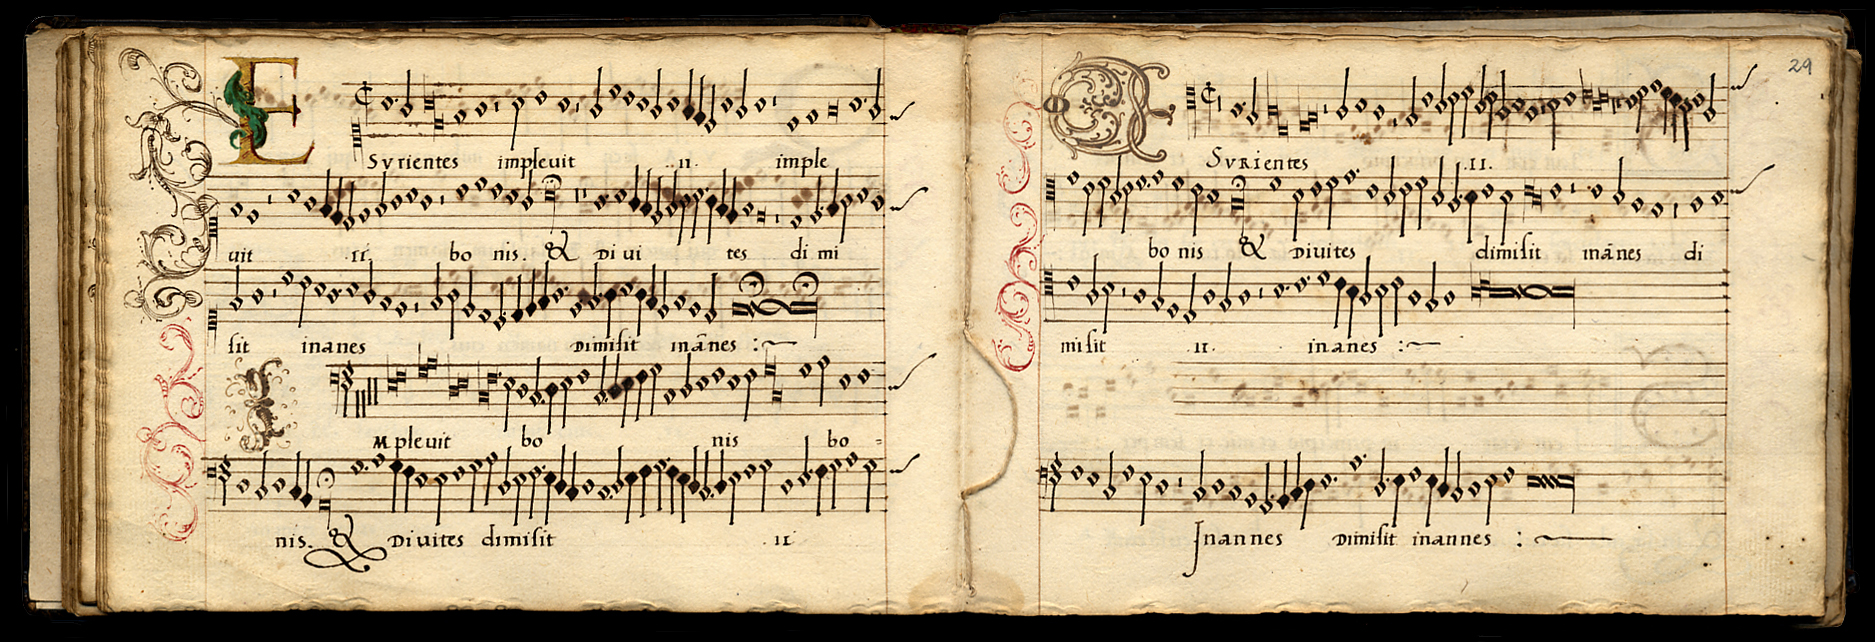 ESurientes impleuit .ij. imple
uit ij. bo nis. & Diui tes di mi
sit inanes Dimisit inānes :~
IMpleuit bo nis bo =
nis. & Diuites dimisit .ij.
29
ESurientes .ij.
bo nis & Diuites dimisit inānes di
misit ij. inanes :~
Inannes Dimisit inannes :~